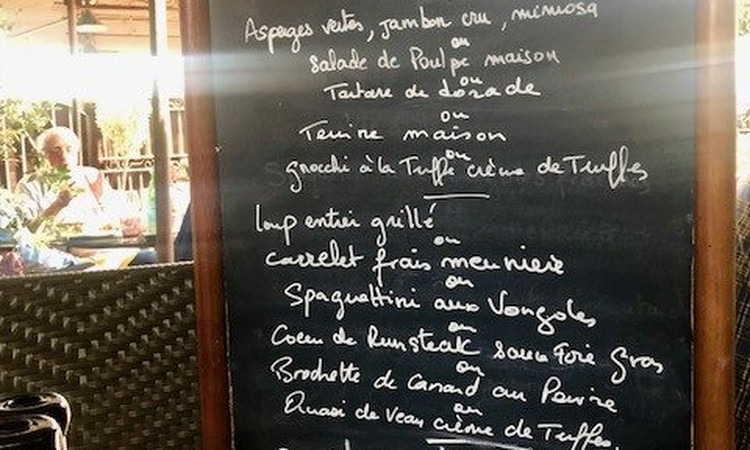 Asperges vertes, jambon cru, mimosa
ou
Salade de Poulpe maison
ou
Tartare de dorade
ou
Terrine maison
ou
gnocchi à la Truffe crème de Truffes
loup entier grillé
ou
carrelet frais meuniere
ou
Spaguettini aux Vongoles
ou
Coeur de Rumsteak sauce Foie gras
ou
Brochette de Canard au Poivre
ou
Quasi de Veau crème de Truffes